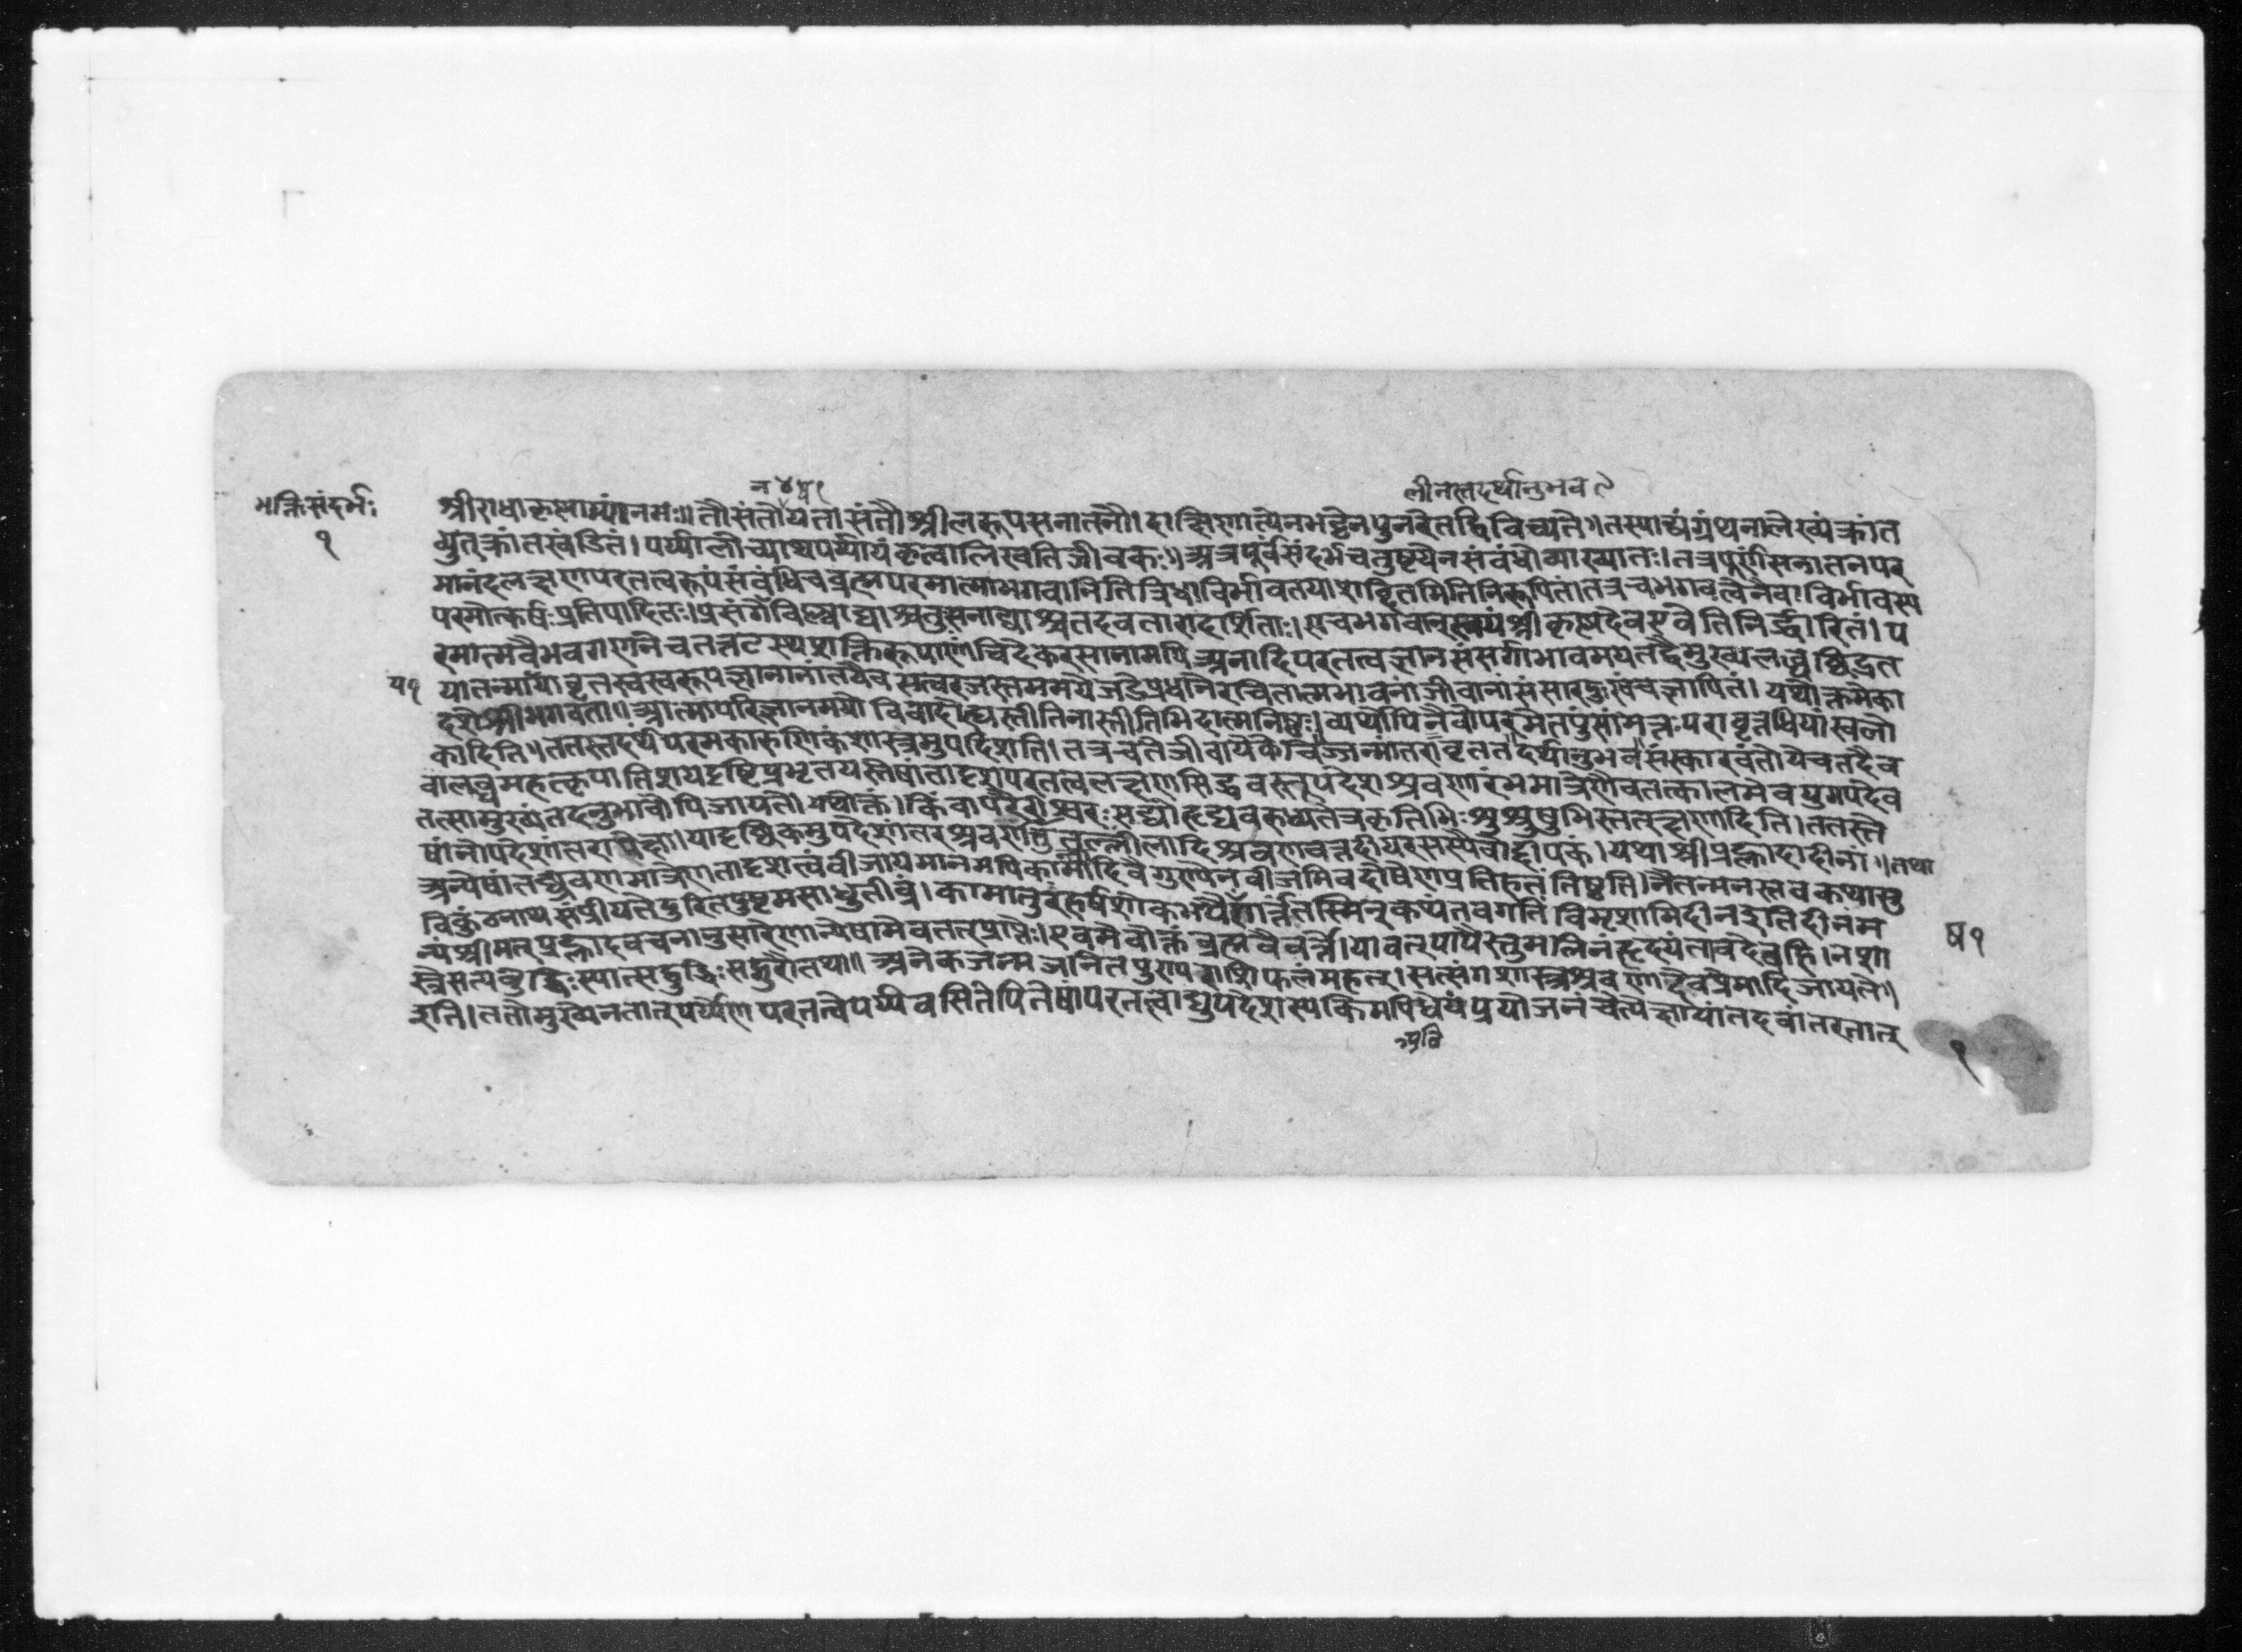 भक्तिसंदर्भः
१
श्रीराधाकृष्णाभ्यांनमः॥तौसंतोषयतासंतौश्रीलरूपसनातनौ।दाक्षिणात्येनभट्टेनपुनरेतद्विविच्यते॥तस्याद्यंग्रंथनालेख्यंक्रांत
व्युत्क्रांतखंडितं।पर्य्यालोच्याथपर्य्यायंकृत्वालिखतिजीवकः॥अत्रपूर्वसंदर्भचतुष्टयेनसंबंधोव्याख्यातः।तत्रपूर्णसनातनपर
मानंदलक्षणपरतत्वरूपंसंबंधिचब्रह्मपरमात्माभगवानितित्रिधाविर्भावतयाशब्दितमितिनिरूपितं।तत्रचभगवत्वेनैवाविर्भावस्य
परमोत्कर्षःप्रतिपादितः।प्रसंगेविष्ण्वाद्याश्चतुःसनाद्याश्चतदवतारादर्शिताः।सचभगवान्स्वयंश्रीकृष्णदेवएवेतिनिर्द्धारितं।प
रमात्मवैभवगणनेचतत्तटस्थशक्तिरूपाणांचिदेकरसानामपिअनादिपरतत्वज्ञानसंसर्गाभावमयतद्वैमुख्यलब्धछिद्रत
यातन्माययावृतस्वस्वरूपज्ञानानांतयैवसत्वरजस्तममयेजडेप्रधानेरचितात्मभावनांजीवानांसंसारदुःखंचज्ञापितं।यथोक्तमेका
दशेश्रीभगवता॥आत्मापरिज्ञानमयोविवादोह्यस्तीतिनास्तीतिभिदात्मनिष्ठः।व्यर्थोपिनैवोपरमेतपुंसांमत्तःपरावृत्तधियांस्वलो
कादिति॥ततस्तदर्थंपरमकारुणिकंशास्त्रमुपदिशति।तत्रचतेजीवायेकेचिज्जन्मांतरावृततदर्थानुभवसंस्कारवंतोयेचतदैव
वालब्धमहत्कृपातिशयदृष्टिप्रभृतयस्तेषांतादृशपरतत्वलक्षणसिद्धवस्तूपदेशश्रवणारंभमात्रेणैवतत्कालमेवयुगपदेव
तत्सांमुख्यंतदनुभवोपिजायते।यथोक्तं।किंवापरैरीश्वरःसद्योहृद्यवरुध्यतेत्रकृतिभिःशुश्रूषुभिस्तत्क्षणादिति।ततस्ते
षांनोपदेशांतरापेक्षा।यादृच्छिकमुपदेशांतरश्रवणंतुतत्तल्लीलादिश्रवणवत्तदीयरसस्यैवोद्दीपकं।यथाश्रीप्रह्लादादीनां॥तथा
अन्येषांतच्छ्रवणमात्रेणतादृशत्वंबीजायमानमपिकामादिवैगुण्येनबीजमिवदोषेणप्रतिहतंतिष्ठति।नैतन्मनस्तवकथासु
विकुंठनाथसंप्रीयतेदुरितदुष्टमसाधुतीव्रं।कामातुरंहर्षशोकभयैषणार्त्तंतस्मिन्कथंतवगतिंविमृशामिदीनइतिदीनंम
न्यंश्रीमत्प्रह्लादवचनानुसारेणान्येषामेवतत्प्राप्तेः।एवमेवोक्तंब्रह्मवैवर्त्ते।यावत्पापैस्तुमलिनंहृदयंतावदेवहि।नशा
स्त्रेसत्यबुद्धिःस्यात्सद्बुद्धिःसद्गुरौतथा॥अनेकजन्मजनितपुण्यराशिफलंमहत्।सत्संगशास्त्रश्रवणादेवप्रेमादिजायते॥
इति।ततोमुख्येनतात्पर्य्येणपरतत्त्वेपर्य्यवसितेपितेषांपरतत्वाद्युपदेशस्यकिमभिधेयंप्रयोजनंचेत्यपेक्षायांतदवांतरतात्
१